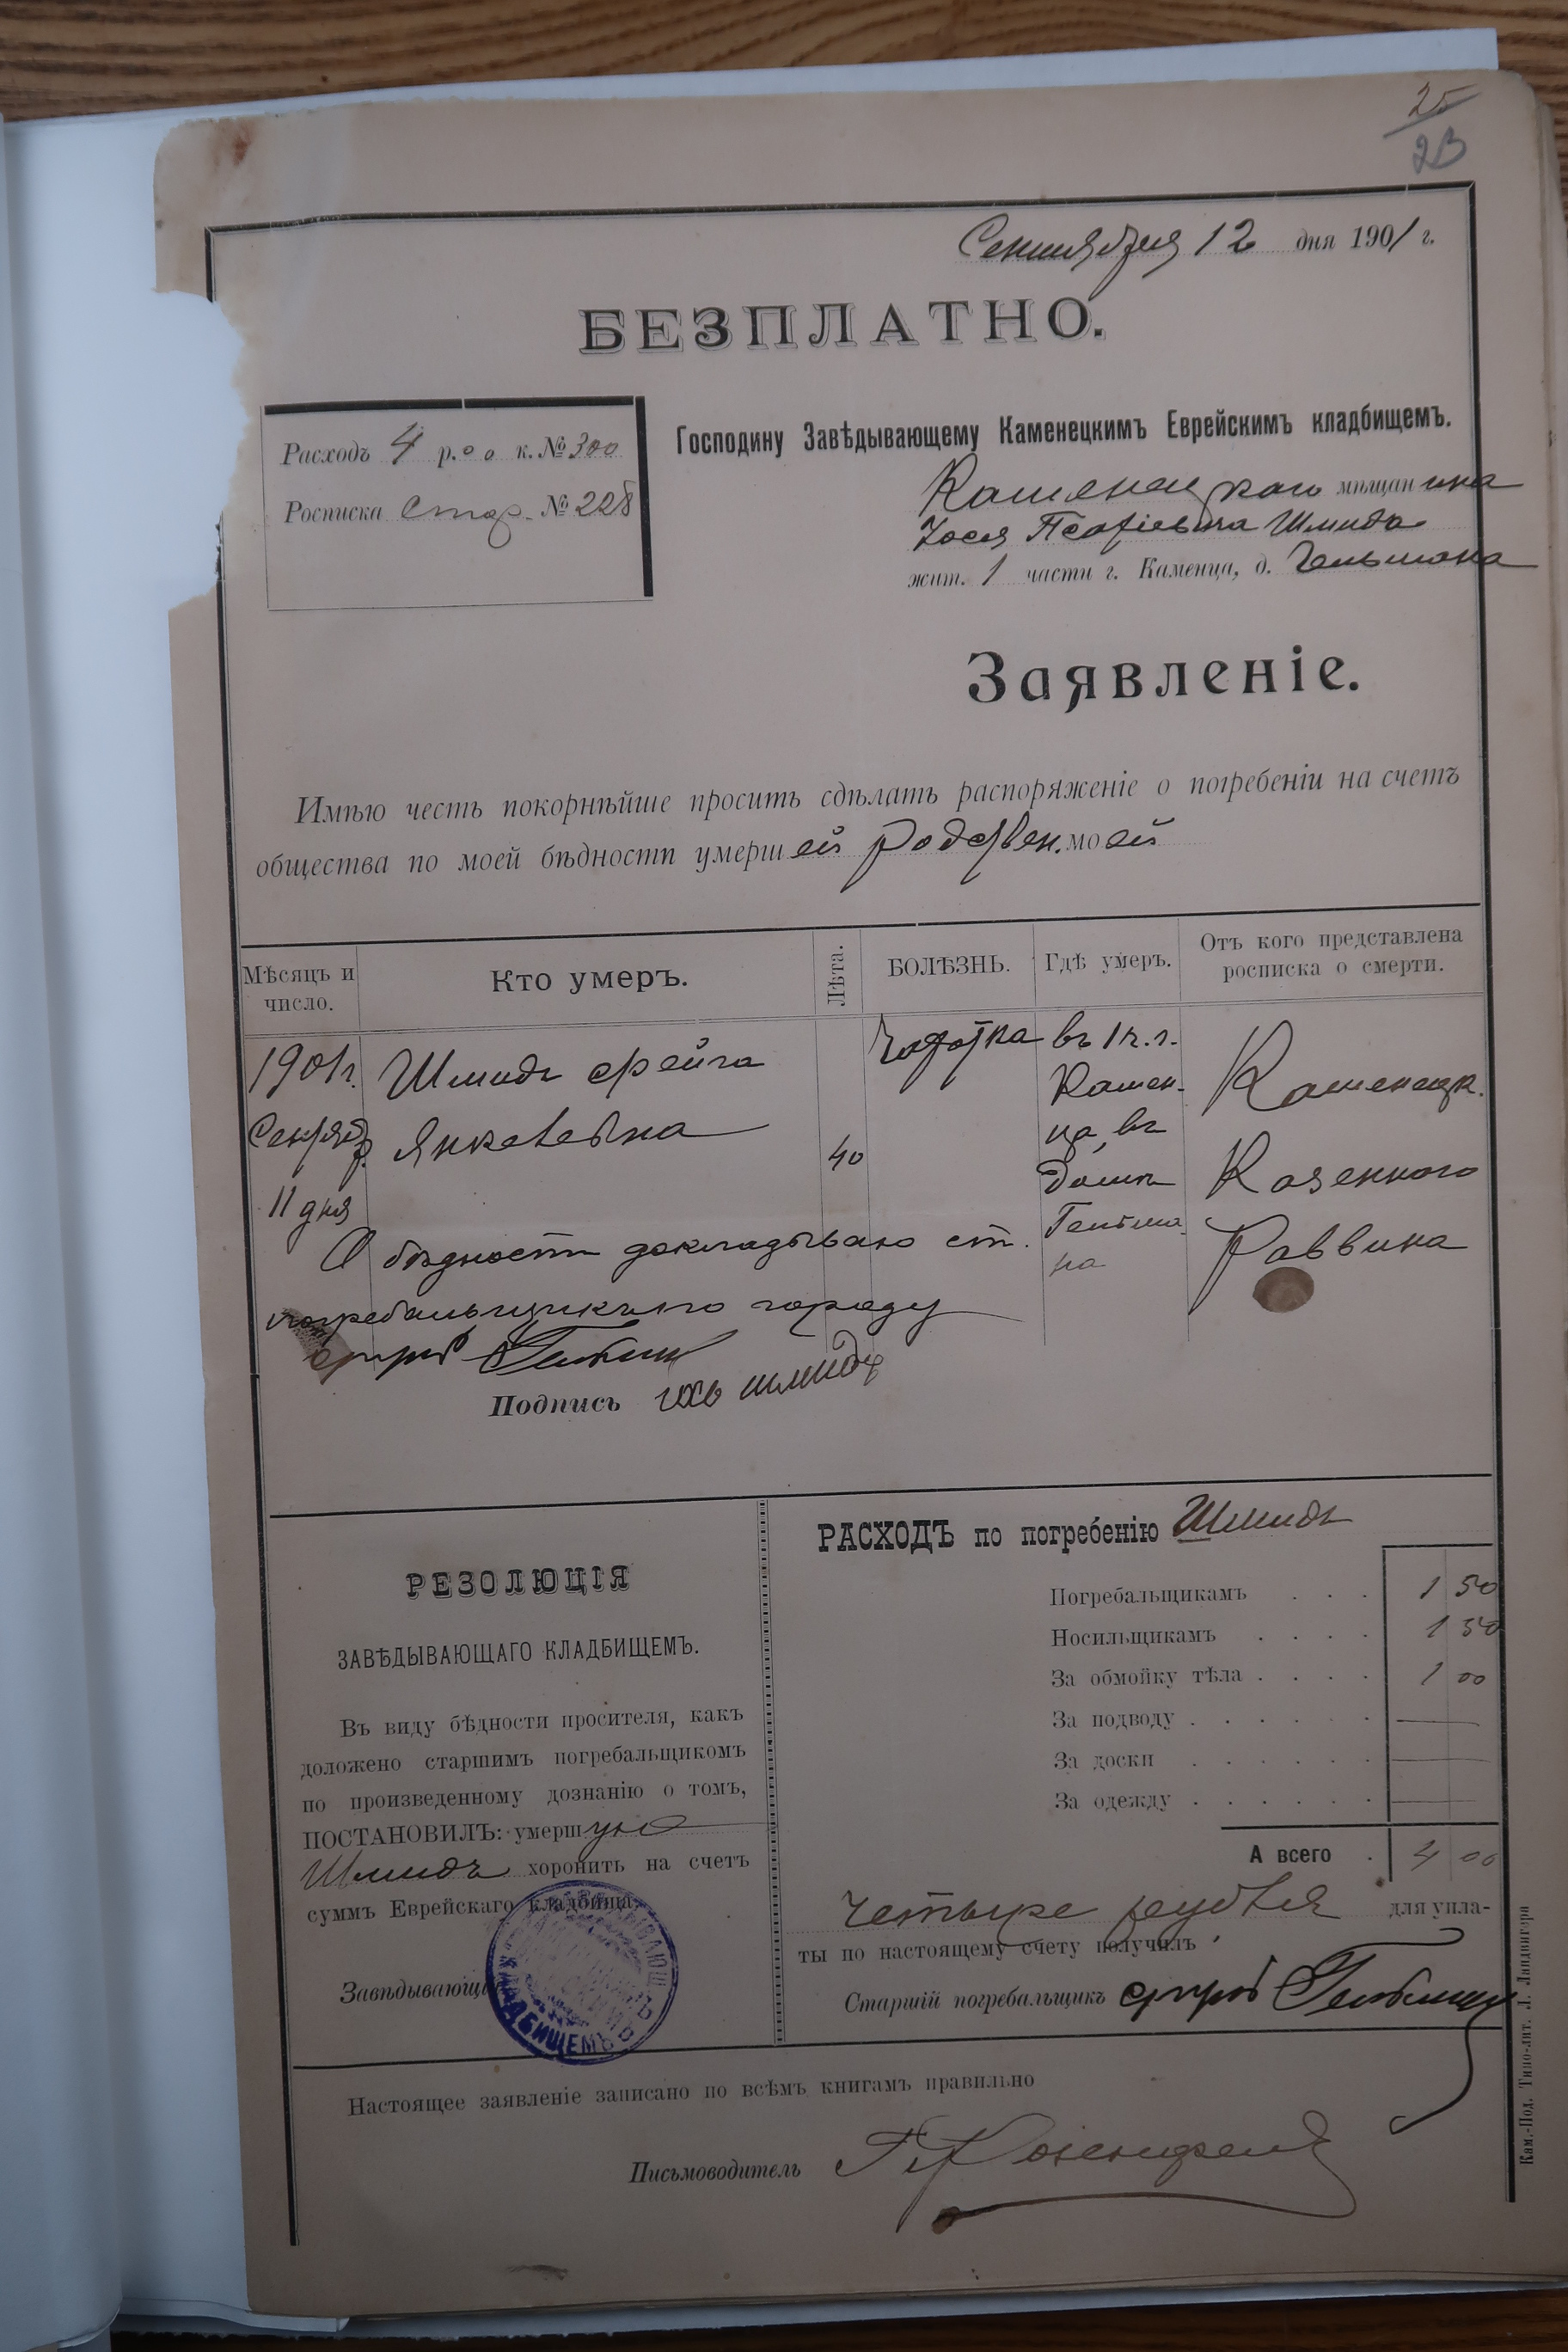 25
23
Сентября 12 дня 1901 г.
БЕЗПЛАТНО.
Расходъ 4 р. 00 к. № 300
Росписка стар. № 228
Господину Завѣдывающему Каменецкимъ Еврейскимъ кладбищемъ.
Каменецкаго мѣщанина
Шмидъ
жит. 1 части г. Каменца, д. Гельмана
Заявленіе.
Имѣю честь покорнѣйше просить сдѣлать распоряженіе о погребеніи на счетъ
общества по моей бѣдности умершей родствен. моей
Мѣсяцъ и число.
Кто умеръ.
Лѣта.
БОЛѢЗНЬ.
Гдѣ умеръ.
Отъ кого представлена росписка о смерти.
1901 г.
Сентяб.
11 дня
Шмидъ Фейга
Янкелевна
40
Чахотка
въ 1 ч. г.
Камен-
ца, въ
домѣ
Гельма-
на
Каменецк.
Казенного
Раввина
О бѣдности докладываю ст.
погребальщикъ по городу
Подпись шмидъ
РЕЗОЛЮЦІЯ
ЗАВѢДЫВАЮЩАГО КЛАДБИЩЕМЪ.
Въ виду бѣдности просителя, какъ
доложено старшимъ погребальщикомъ
по произведенному дознанію о томъ,
ПОСТАНОВИЛЪ: умершую
Шмидъ хоронить на счетъ
суммъ Еврейскаго кладбища.
Завѣдывающій
РАСХОДЪ по погребенію Шмидъ
Погребальщикамъ . . . 1 50
Носильщикамъ . . . . 1 50
За обмойку тѣла . . . . 1 00
За подводу . . . . . .
За доски . . . . . .
За одежду . . . . . .
А всего . 4 00
Четыре рубля для упла-
ты по настоящему счету получилъ
Старшій погребальщикъ
Настоящее заявленіе записано по всѣмъ книгамъ правильно
Письмоводитель
Кам.-Под. Типо-лит. Л. Ландвигера